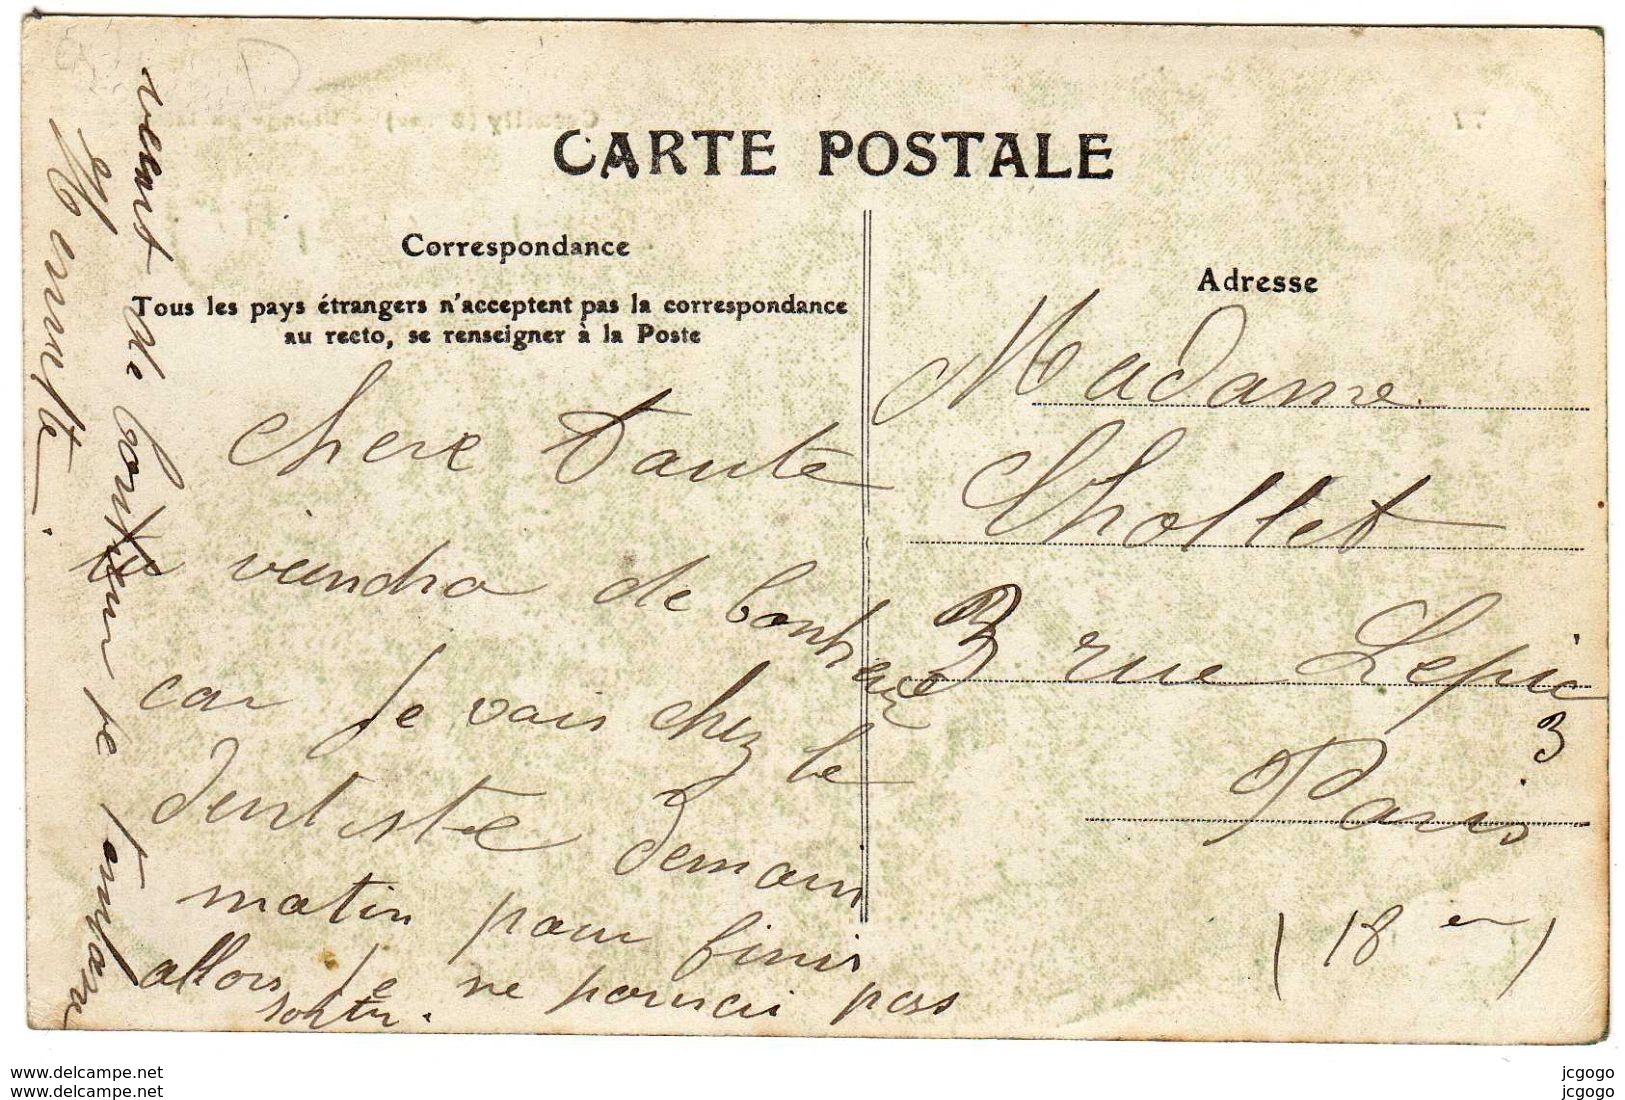 CARTE POSTALE
Correspondance
Tous les pays étrangers n'acceptent pas la correspondance
au recto, se renseigner à la Poste
Adresse
chere Tante
tu veindra de bonheur
car je vais chez le
dentiste demain
matin pour finir
allors je ne pourrai pas
sortir.
vent de
se
Madame
Chollet
3 rue Lepic
3
Paris
(18 em)
www.delcampe.net
www.delcampe.net
jcgogo
jcgogo